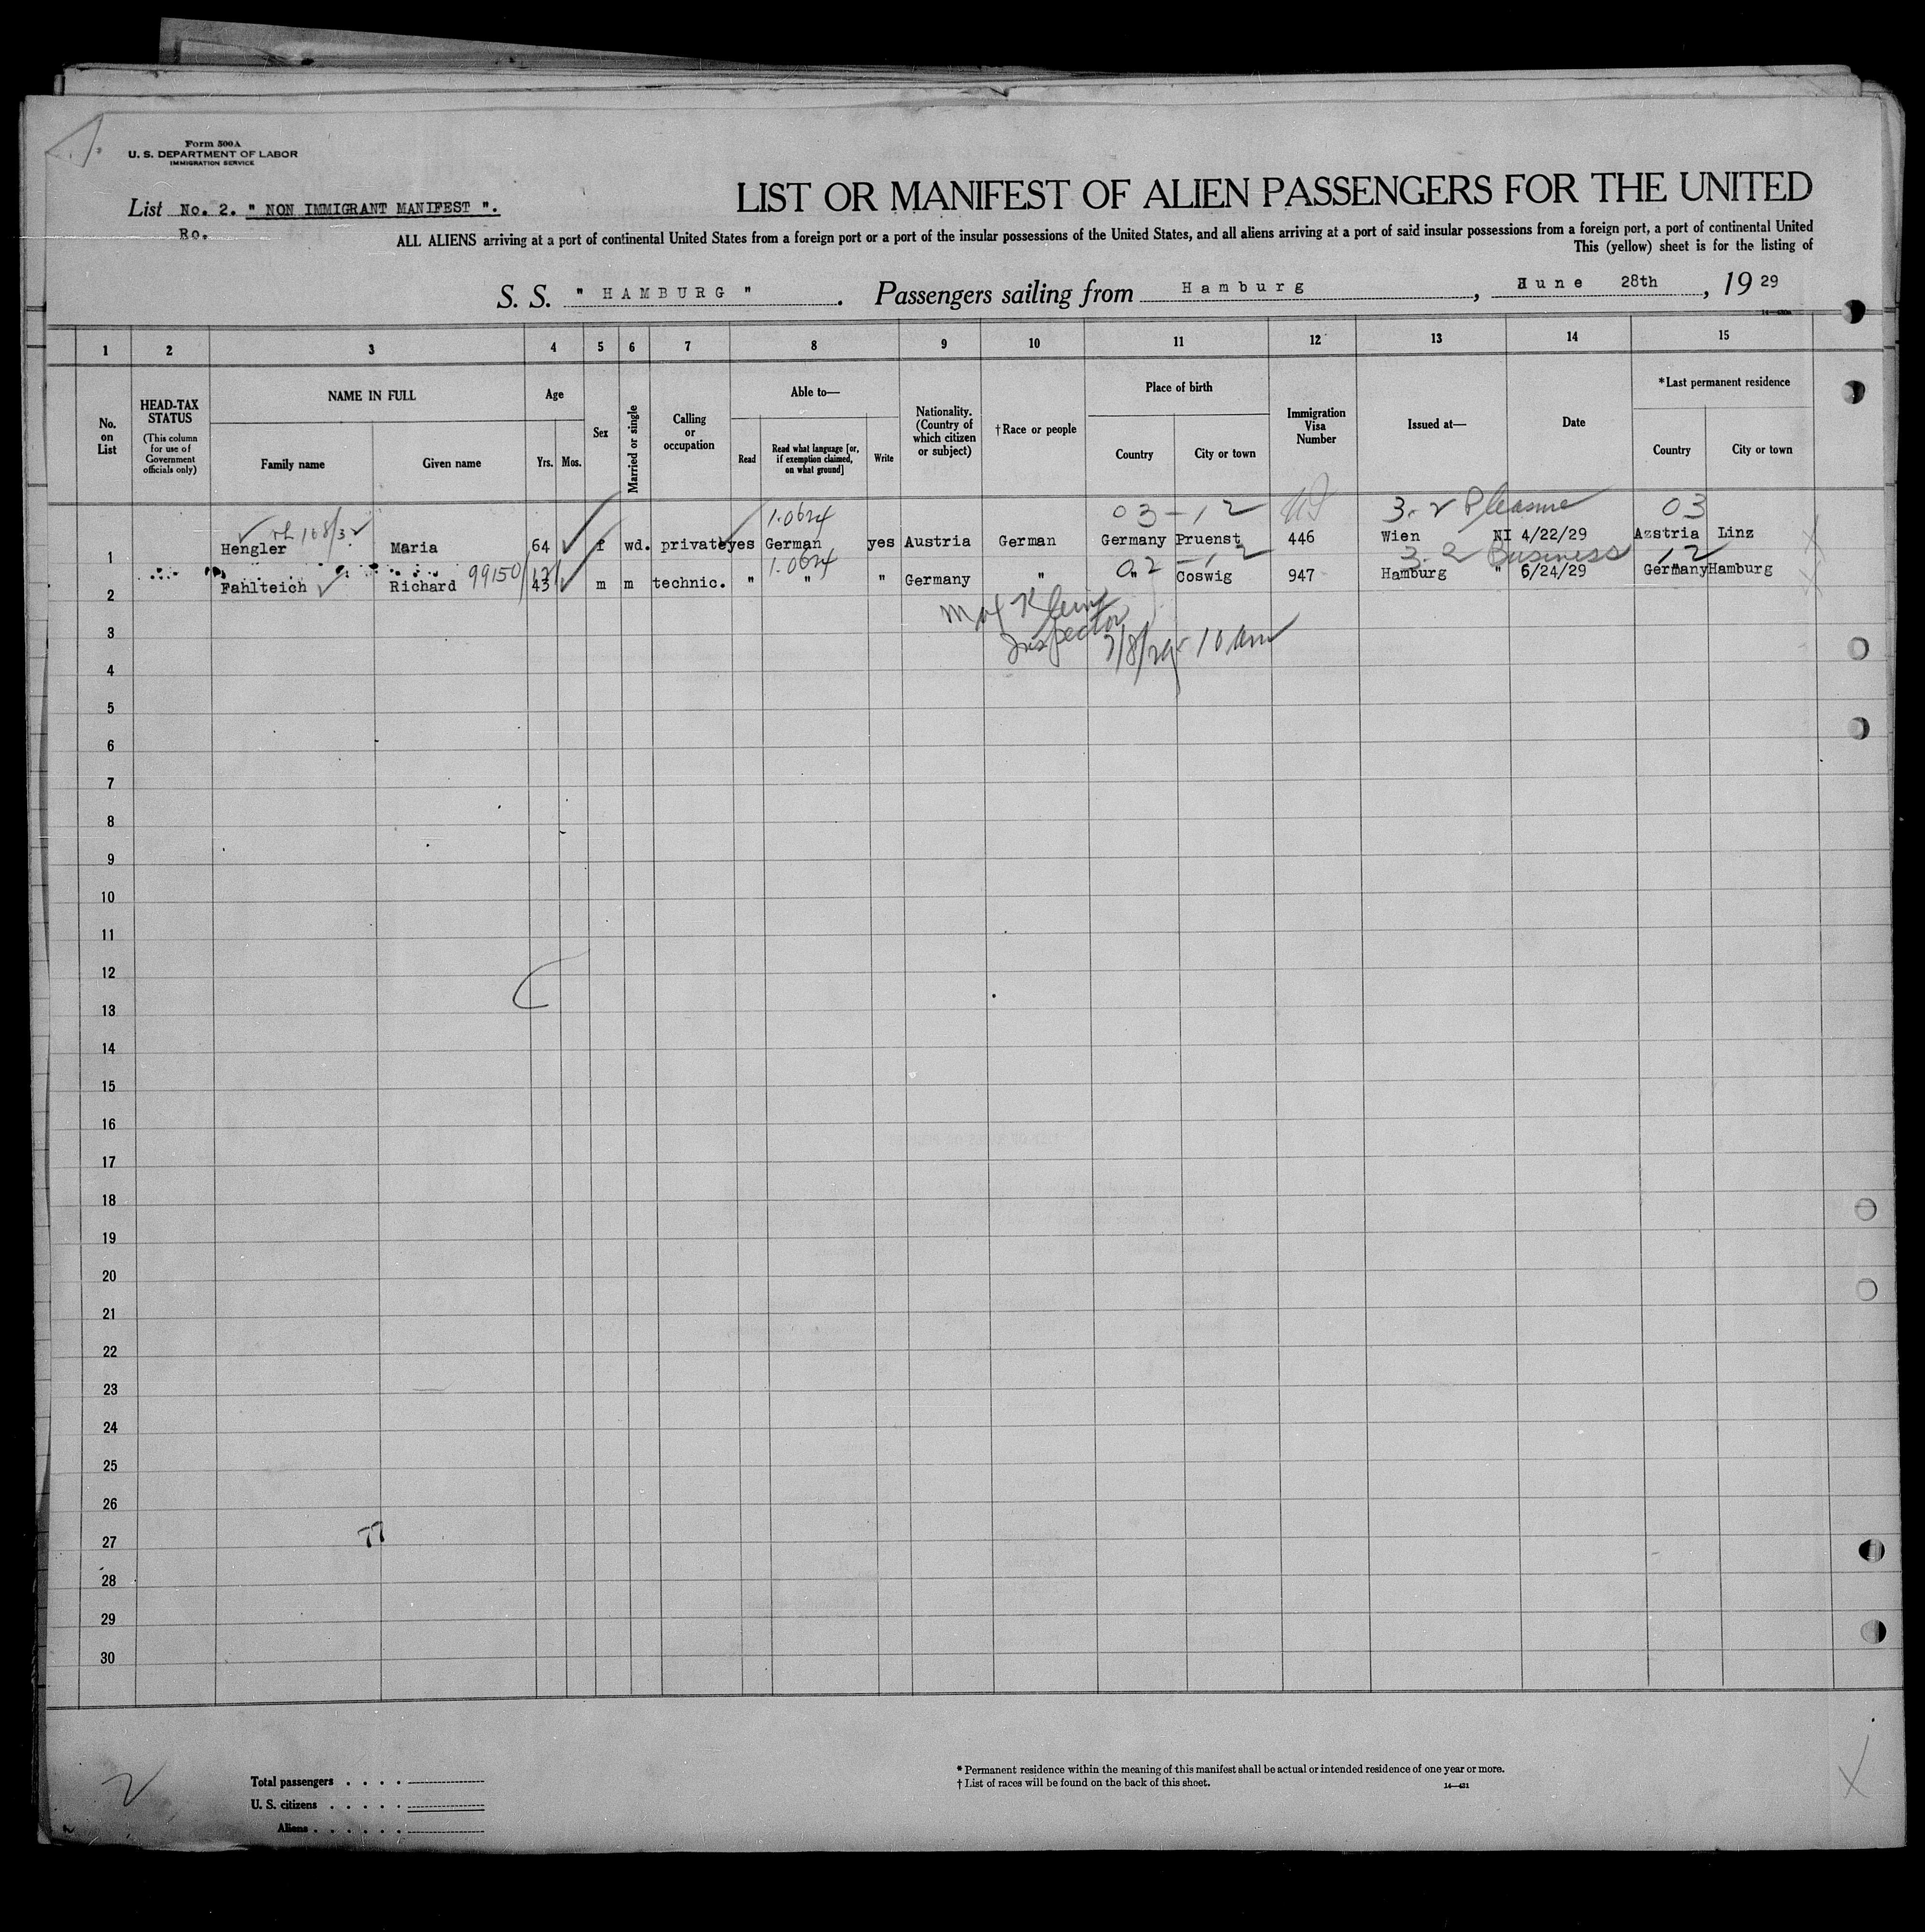 Form 500A
U. S. DEPARTMENT OF LABOR
IMMIGRATION SERVICE
List No. 2. " NON IMMIGRANT MANIFEST ".
Ro.
LIST OR MANIFEST OF ALIEN PASSENGERS FOR THE UNITED
ALL ALIENS arriving at a port of continental United States from a foreign port or a port of the insular possessions of the United States, and all aliens arriving at a port of said insular possessions from a foreign port, a port of continental United
This (yellow) sheet is for the listing of
S. S. " HAMBURG ". Passengers sailing from Hamburg, June 28th, 19 29
1 2 3 4 5 6 7 8 9 10 11 12 13 14 15
No. on List
HEAD-TAX STATUS (This column for use of Government officials only)
NAME IN FULL
Family name Given name
Age
Yrs. Mos.
Sex
Married or single
Calling or occupation
Able to—
Read Read what language [or, if exemption claimed, on what ground] Write
Nationality. (Country of which citizen or subject)
†Race or people
Place of birth
Country City or town
Immigration Visa Number
Issued at—
Date
*Last permanent residence
Country City or town
168/32 1.0624 03-12 3.2 Pleasure 03
1 Hengler Maria 64 f wd. private yes German yes Austria German Germany Pruenst 446 Wien NI 4/22/29 Azstria Linz
99150/121 1.0624 02 -12 3.2 Business 12
2 Fahlteich Richard 43 m m technic. " " " Germany " " Coswig 947 Hamburg " 6/24/29 Germany Hamburg
Max Klein
Inspector
7/8/29 - 10 am
3
4
5
6
7
8
9
10
11
12
13
14
15
16
17
18
19
20
21
22
23
24
25
26
27
77
28
29
30
2
Total passengers . . . .
U. S. citizens . . . . .
Aliens . . . . . .
* Permanent residence within the meaning of this manifest shall be actual or intended residence of one year or more.
† List of races will be found on the back of this sheet.
14—431